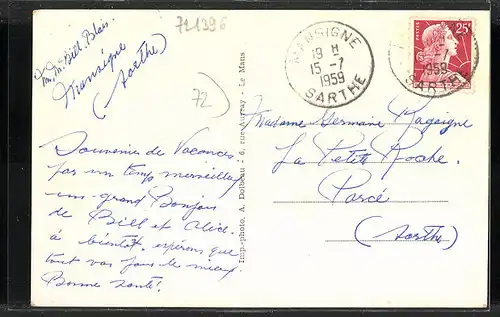 721396
Mr Me Biell. Blais.
Mansigné
(Sarthe)
72
Souvenirs de Vacances
par un temps merveilleux
un grand Bonjour
de Biell et Alice.
à bientôt, espérons que
tout va pour le mieux.
Bonne santé!
Imp.-photo. A. Dolbeau - 6, rue Auvray - Le Mans
MANSIGNE
19 H
15 -7
1959
SARTHE
-7
1959
SARTHE
POSTES
25F
Madame Germaine
La Petite Roche.
Parcé
(Sarthe)